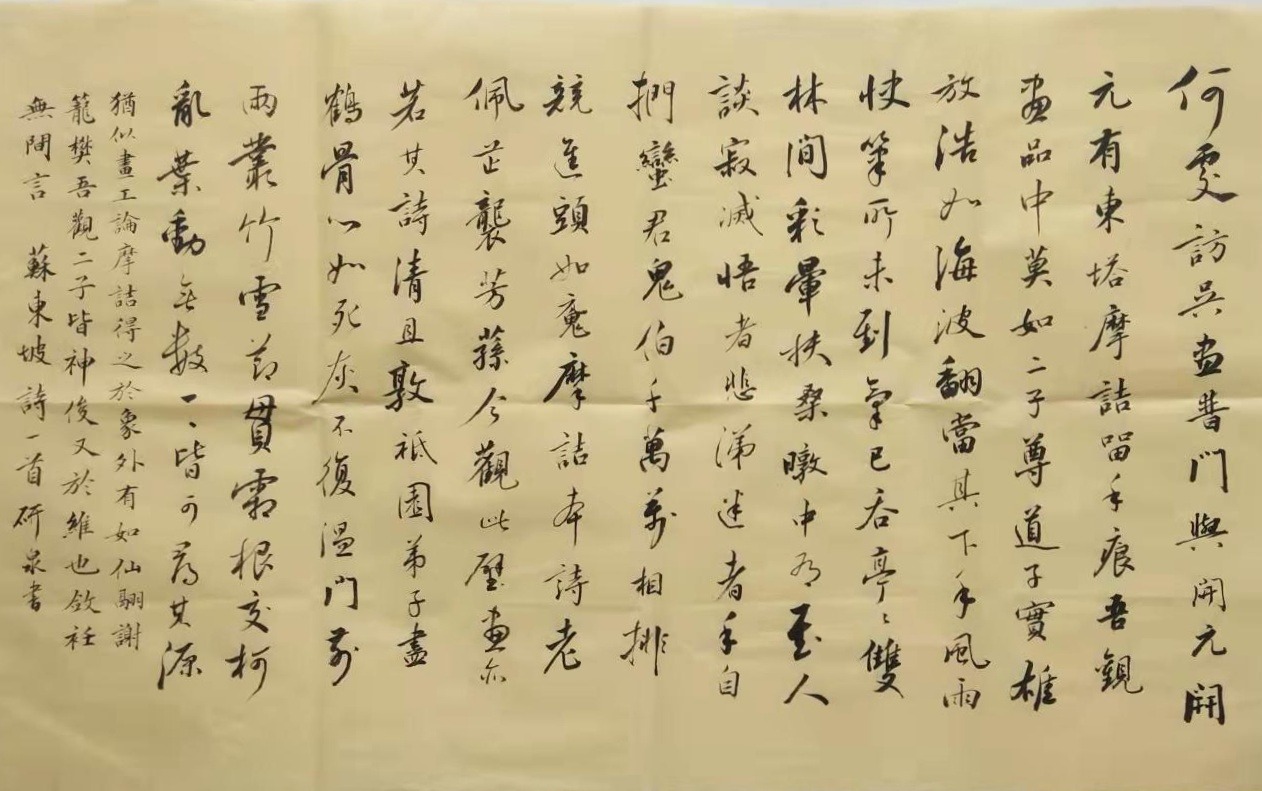 何處訪吳畫普門與開元開
元有東塔摩詰留手痕吾觀
畫品中莫如二子尊道子實雄
放浩如海波翻當其下手風雨
快筆所未到氣已吞亭亭雙
林間彩暈扶桑暾中有至人
談寂滅悟者悲涕迷者手自
捫蠻君鬼伯千萬萬相排
競進頭如黿摩詰本詩老
佩芷襲芳蓀今觀此壁畫亦
若其詩清且敦祇園弟子盡
鶴骨心如死灰不復溫門前
兩叢竹雪節貫霜根交柯
亂葉動無數一一皆可尋其源
猶似畫工論摩詰得之於象外有如仙翮謝
籠樊吾觀二子皆神俊又於維也斂衽
無間言 蘇東坡詩一首 研泉書